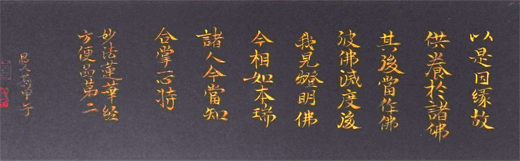 以是因緣故
供養於諸佛
其後當作佛
彼佛滅度後
我見燈明佛
今相如本瑞
諸人今當知
合掌一心待
妙法蓮華經
方便品第二